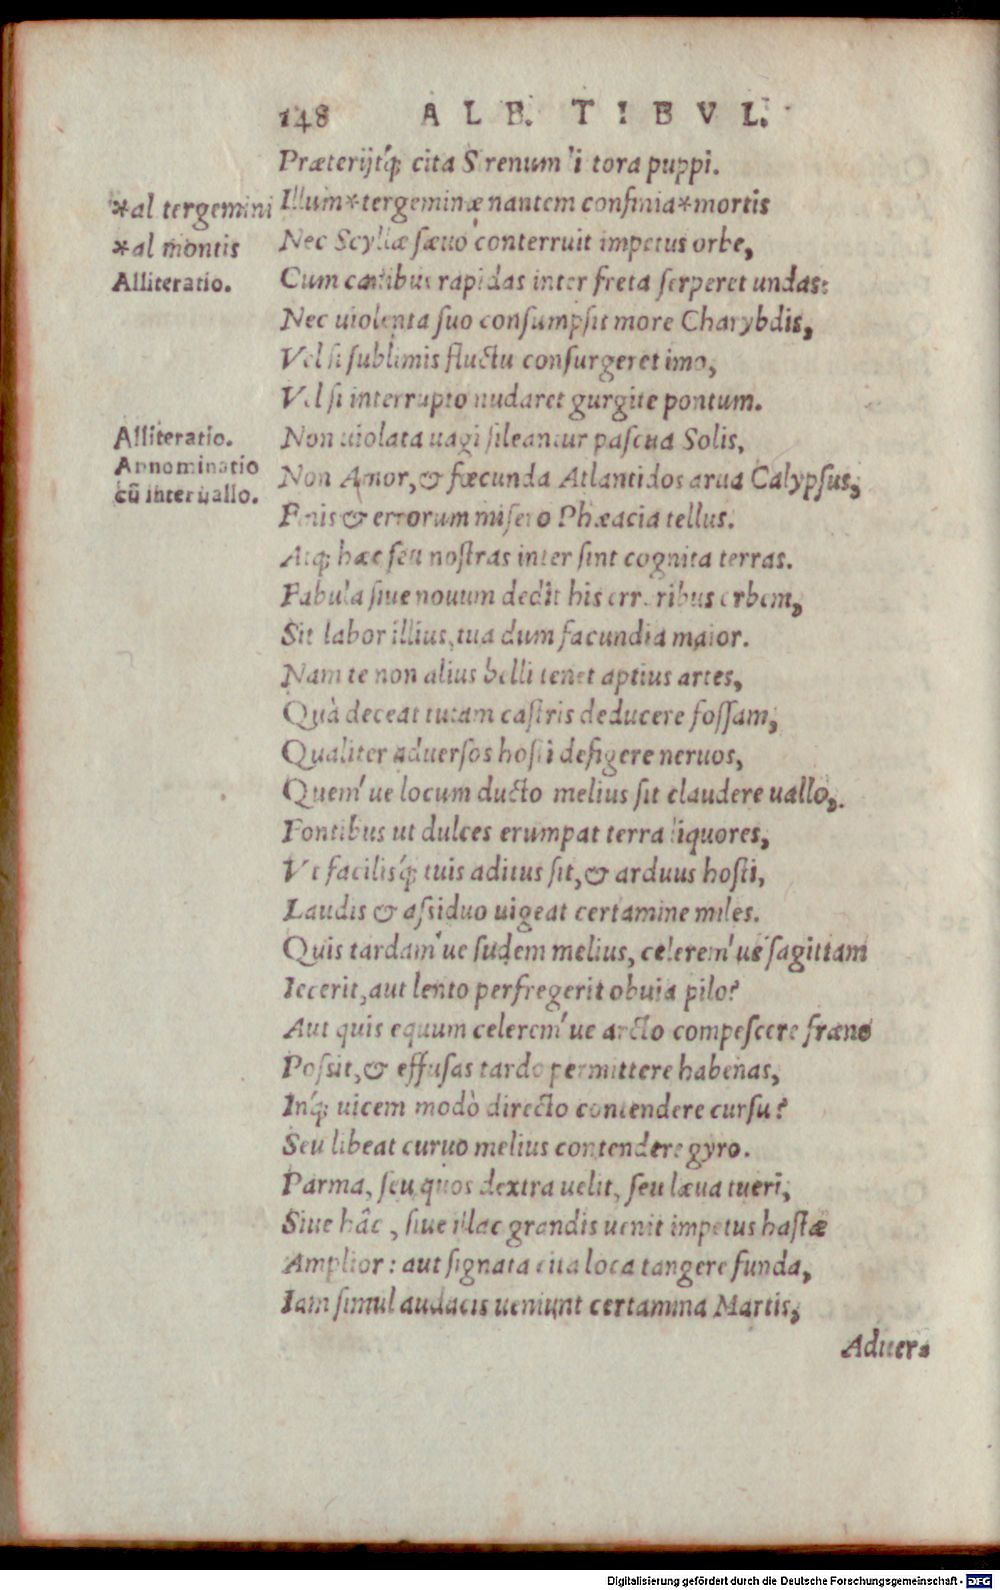 148 ALB. TIBVL.
Præterijtq́; cita Sirenum litora puppi.
*al tergemini
Illum*tergeminæ nantem confinia*mortis
*al montis
Nec Scyllæ sæuo conterruit impetus orbe,
Alliteratio.
Cum canibus rapidas inter freta serperet undas:
Nec uiolenta suo consumpsit more Charybdis,
Vel si sublimis fluctu consurgeret imo,
Vel si interrupto nudaret gurgite pontum.
Alliteratio.
Non uiolata uagi sileantur pascua Solis,
Annominatio
cū interuallo.
Non Amor, & fœcunda Atlantidos arua Calypsus,
Finis & errorum misero Phæacia tellus.
Atq; hæc seu nostras inter sint cognita terras.
Fabula siue nouum dedit his erroribus orbem,
Sit labor illius, tua dum facundia maior.
Nam te non alius belli tenet aptius artes,
Quà deceat tutam castris deducere fossam,
Qualiter aduersos hosti defigere neruos,
Quem'ue locum ducto melius sit claudere uallo,.
Fontibus ut dulces erumpat terra liquores,
Vt facilisq́; tuis aditus sit, & arduus hosti,
Laudis & assiduo uigeat certamine miles.
Quis tardam'ue sudem melius, celerem'ue sagittam
Iecerit, aut lento perfregerit obuia pilo?
Aut quis equum celerem'ue arcto compescere fræno
Possit, & effusas tardo permittere habenas,
Inq́; uicem modò directo contendere cursu?
Seu libeat curuo melius contendere gyro.
Parma, seu quos dextra uelit, seu læua tueri,
Siue hâc, siue illac grandis uenit impetus hastæ
Amplior: aut signata cita loca tangere funda,
Iam simul audacis ueniunt certamina Martis,
Aduer-
Digitalisierung gefördert durch die Deutsche Forschungsgemeinschaft - DFG